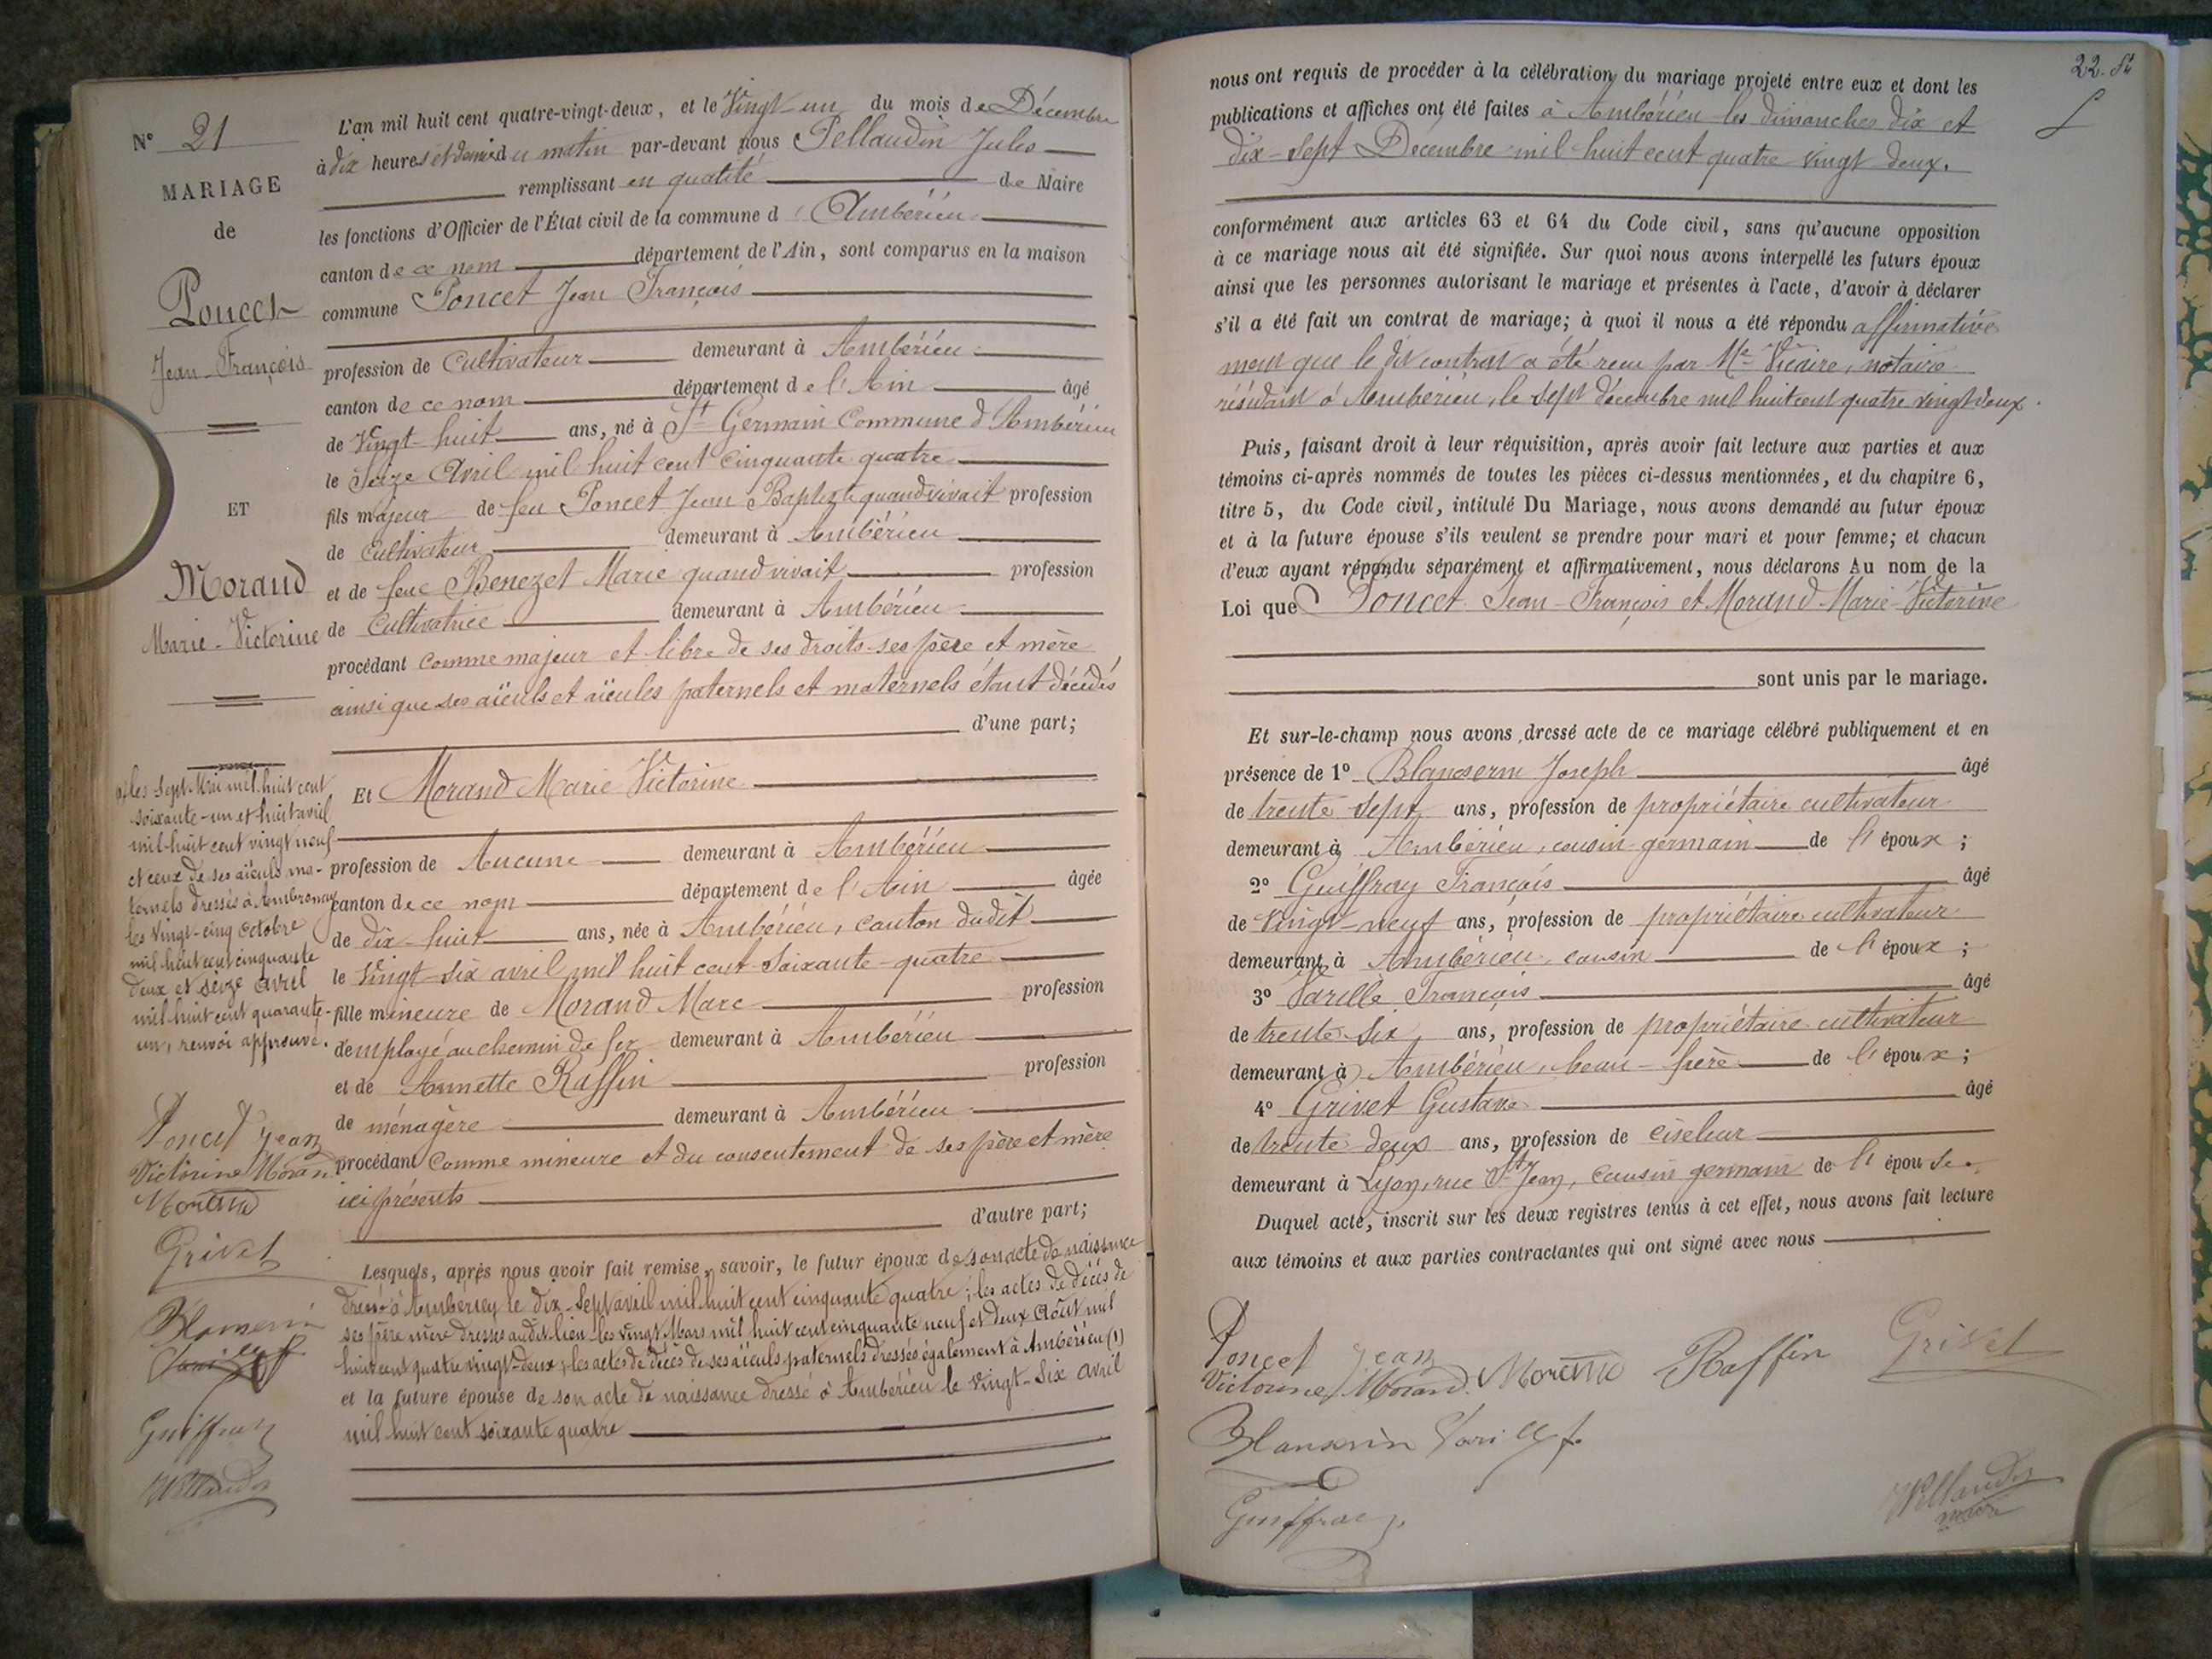 N° 21
MARIAGE
de
Poncet
Jean-François
ET
Morand
Marie-Victorine
(1) les sept Mai mil huit cent
soixante-un et huit avril
mil huit cent vingt neuf
et ceux de ses aïeuls ma-
ternels dressés à Ambronay
les vingt-cinq octobre
mil huit cent cinquante
deux et seize avril
mil huit cent quarante-
un, renvoi approuvé.
Poncet Jean
Victorine Moran
Morand
Grivet
Blanserin
Guiffray
L'an mil huit cent quatre-vingt-deux, et le Vingt-un du mois de Décembre
à dix heures et demie du matin par-devant nous Pellaudin Jules
remplissant en qualité de Maire
les fonctions d'Officier de l'État civil de la commune d'Ambérieu
canton de ce nom département de l'Ain, sont comparus en la maison
commune Poncet Jean François
profession de Cultivateur demeurant à Ambérieu
canton de ce nom département de l'Ain âgé
de Vingt-huit ans, né à St Germain Commune d'Ambérieu
le Seize Avril mil huit cent cinquante quatre
fils majeur de feu Poncet Jean Baptiste quand vivait profession
de Cultivateur demeurant à Ambérieu
et de feue Benezet Marie quand vivait profession
de Cultivatrice demeurant à Ambérieu
procédant comme majeur et libre de ses droits ses père et mère
ainsi que ses aïeuls et aïeules paternels et maternels étant décédés
d'une part;
Et Morand Marie Victorine
profession de Aucune demeurant à Ambérieu
canton de ce nom département de l'Ain âgée
de dix-huit ans, née à Ambérieu, canton dudit
le Vingt-six avril mil huit cent soixante-quatre
fille mineure de Morand Marc profession
d'employé au chemin de fer demeurant à Ambérieu
et de Annette Raffin profession
de ménagère demeurant à Ambérieu
procédant comme mineure et du consentement de ses père et mère
ici présents
d'autre part;
Lesquels, après nous avoir fait remise, savoir, le futur époux de son acte de naissance
dressé à Ambérieu le dix-sept avril mil huit cent cinquante quatre; les actes de décès de
ses père mère dressés audit lieu les vingt Mars mil huit cent cinquante neuf et deux Août mil
huit cent quatre vingt-deux, les actes de décès de ses aïeuls paternels dressés également à Ambérieu (1)
et la future épouse de son acte de naissance dressé à Ambérieu le vingt-six avril
mil huit cent soixante quatre
nous ont requis de procéder à la célébration du mariage projeté entre eux et dont les
publications et affiches ont été faites à Ambérieu les dimanches dix et
dix-sept Décembre mil huit cent quatre vingt deux.
conformément aux articles 63 et 64 du Code civil, sans qu'aucune opposition
à ce mariage nous ait été signifiée. Sur quoi nous avons interpellé les futurs époux
ainsi que les personnes autorisant le mariage et présentes à l'acte, d'avoir à déclarer
s'il a été fait un contrat de mariage; à quoi il nous a été répondu affirmative
ment que le dit contrat a été reçu par Me Vicaire, notaire
résidant à Ambérieu, le sept décembre mil huit cent quatre vingt deux.
Puis, faisant droit à leur réquisition, après avoir fait lecture aux parties et aux
témoins ci-après nommés de toutes les pièces ci-dessus mentionnées, et du chapitre 6,
titre 5, du Code civil, intitulé Du Mariage, nous avons demandé au futur époux
et à la future épouse s'ils veulent se prendre pour mari et pour femme; et chacun
d'eux ayant répondu séparément et affirmativement, nous déclarons Au nom de la
Loi que Poncet Jean-François et Morand Marie-Victorine
sont unis par le mariage.
Et sur-le-champ nous avons dressé acte de ce mariage célébré publiquement et en
présence de 1° Blanserin Joseph âgé
de trente sept ans, profession de propriétaire cultivateur
demeurant à Ambérieu, cousin germain de l'époux;
2° Guiffray François âgé
de vingt-neuf ans, profession de propriétaire cultivateur
demeurant à Ambérieu, cousin de l'époux;
3° Varille François âgé
de trente-six ans, profession de propriétaire cultivateur
demeurant à Ambérieu, beau-frère de l'époux;
4° Grivet Gustave âgé
de trente deux ans, profession de ciseleur
demeurant à Lyon, rue St Jean, cousin germain de l'épouse.
Duquel acte, inscrit sur les deux registres tenus à cet effet, nous avons fait lecture
aux témoins et aux parties contractantes qui ont signé avec nous
Poncet Jean
Victorine Morand Morand Raffin Grivet
Blanserin Varille f.
Guiffray
Pellaudin
maire